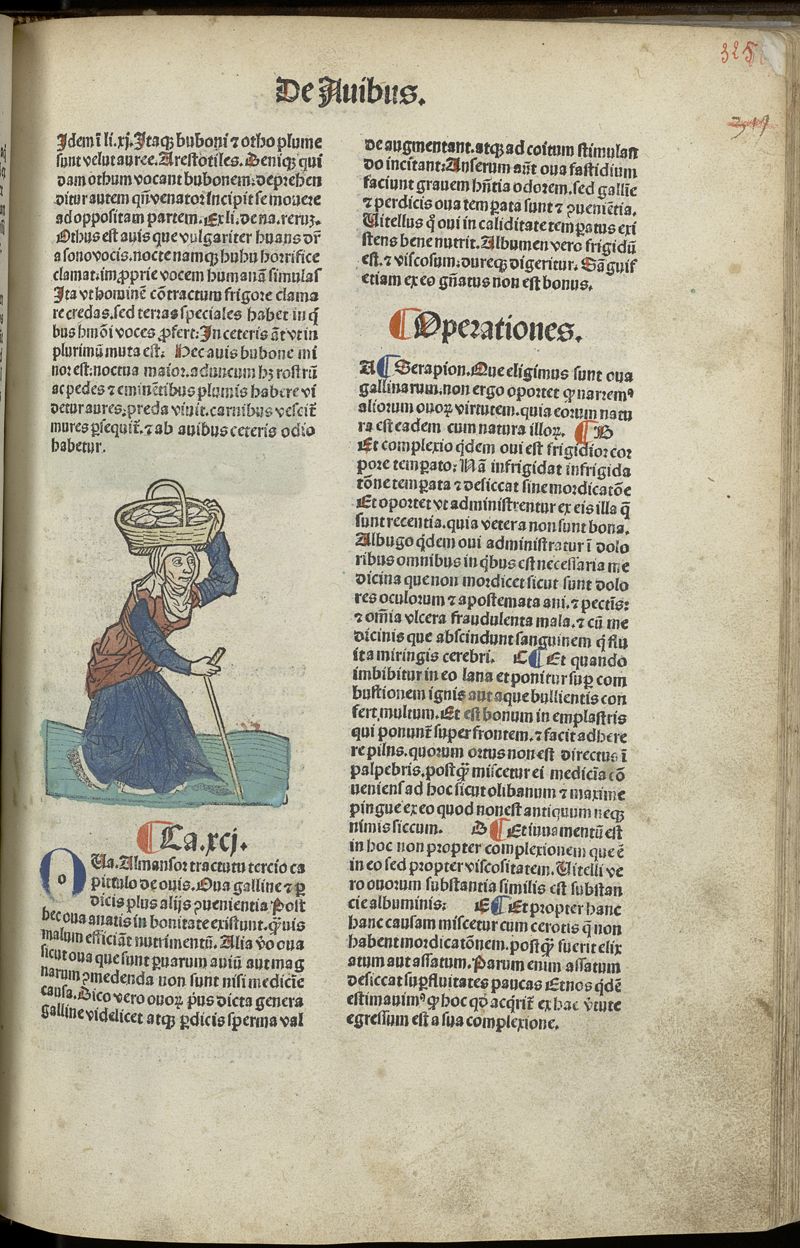 325
De Auibus.
Idem ī li.xj. Itaqꝫ buboni ⁊ otho plume
sunt velut auree. Arestotiles. Deniqꝫ qui
dam othum vocant bubonem: deprehen
ditur autem qn̄ venator Incipit se mouere
ad oppositam partem. Ex li. de na. reruꝫ.
Othus est auis que vulgariter huans dr̄
a sono vocis. nocte namqꝫ huhu horrifice
clamat: im ꝓprie vocem humanā simulās
Ita vt hominē cōtractum frigore clama
re credas. sed terras speciales habet in q̄
bus hmōi voces ꝓfert: In ceteris āt vt in
plurimū muta est. Hec auis bubone mi
nor est: noctua maior. aduncum hꝫ rostrū
ac pedes ⁊ eminētibus plumis habere vi
detur aures: preda viuit. carnibus vescit̄
mures ꝑsequit̄. ⁊ ab auibus ceteris odio
habetur.
Ca.xcj.
OUa. Almansor tractatu tercio ca
pittulo de ouis. Oua galline ⁊ ꝑ
dicis plus alijs ꝯuenientia Post
hec oua anatis in bonitate existunt. q̄uis
malum efficiāt nutrimentū. Alia v̄o oua
sicut oua que sunt ꝑuarum auiū aut mag
narum ꝯmedenda non sunt nisi medicīe
causa. Dico vero ouoꝝ p̄us dicta genera
galline videlicet atqꝫ ꝑdicis sperma val
de augmentant. atqꝫ ad coitum stimulan
do incitant: Anserum aūt oua fastidium
faciunt grauem hn̄tia odorem. sed gallīe
⁊ perdicis oua temꝑata sunt ⁊ ꝯueniētia.
Uitellus q̄ oui in caliditate temꝑatus exi
stens bene nutrit. Albumen vero frigidū
est. ⁊ viscosum: dureqꝫ digeritur. Sāguis
etiam ex eo gn̄atus non est bonus.
Operationes.
A Serapion. Que eligimus sunt oua
gallinarum. non ergo oportet ꝙ narrem⁹
aliorum ouoꝝ virtutem. quia eorum natu
ra est eadem cum natura illoꝝ. B
Et complexio q̄dem oui est frigidior cor
pore temꝑato: Nā infrigidat infrigida
tōne temꝑata ⁊ desiccat sine mordicatōe
Et oportet vt administrentur ex eis illa q̄
sunt recentia. quia vetera non sunt bona.
Albugo q̄dem oui administratur ī dolo
ribus omnibus in q̄bus est necessaria me
dicina que non mordicet sicut sunt dolo
res oculorum ⁊ apostemata ani. ⁊ pectīs:
⁊ om̄ia vlcera fraudulenta mala. ⁊ cū me
dicinis que abscindunt sanguinem q̄ flu
it a miringis cerebri. C Et quando
imbibitur in eo lana et ponitur suꝑ com
bustionem ignis aut aque bullientis con
fert multum. Et est bonum in emplastris
qui ponunt̄ super frontem. ⁊ facit adhere
re pilus. quorum ortus non est directus ī
palpebris. postq̄ȝ miscetur ei medicīa cō
ueniens ad hoc sicut olibanum ⁊ maxime
pingue ex eo quod non est antiquum neqꝫ
nimis siccum. D Et iuuamentū est
in hoc non propter complexionem que ē
in eo sed propter viscositatem. Uitelli ve
ro ouorum substantia similis est substan
cie albuminis: E Et propter hanc
hanc causam miscetur cum cerotis q̄ non
habent mordicatōnem. postq̄ȝ fuerit elix
atum aut assatum. Parum enim assatum
desiccat suꝑfluitates paucas Et nos q̄dē
estimauim⁹ ꝙ hoc qd̄ acq̄rit̄ ex hac v̄tute
egressum est a sua complexione.